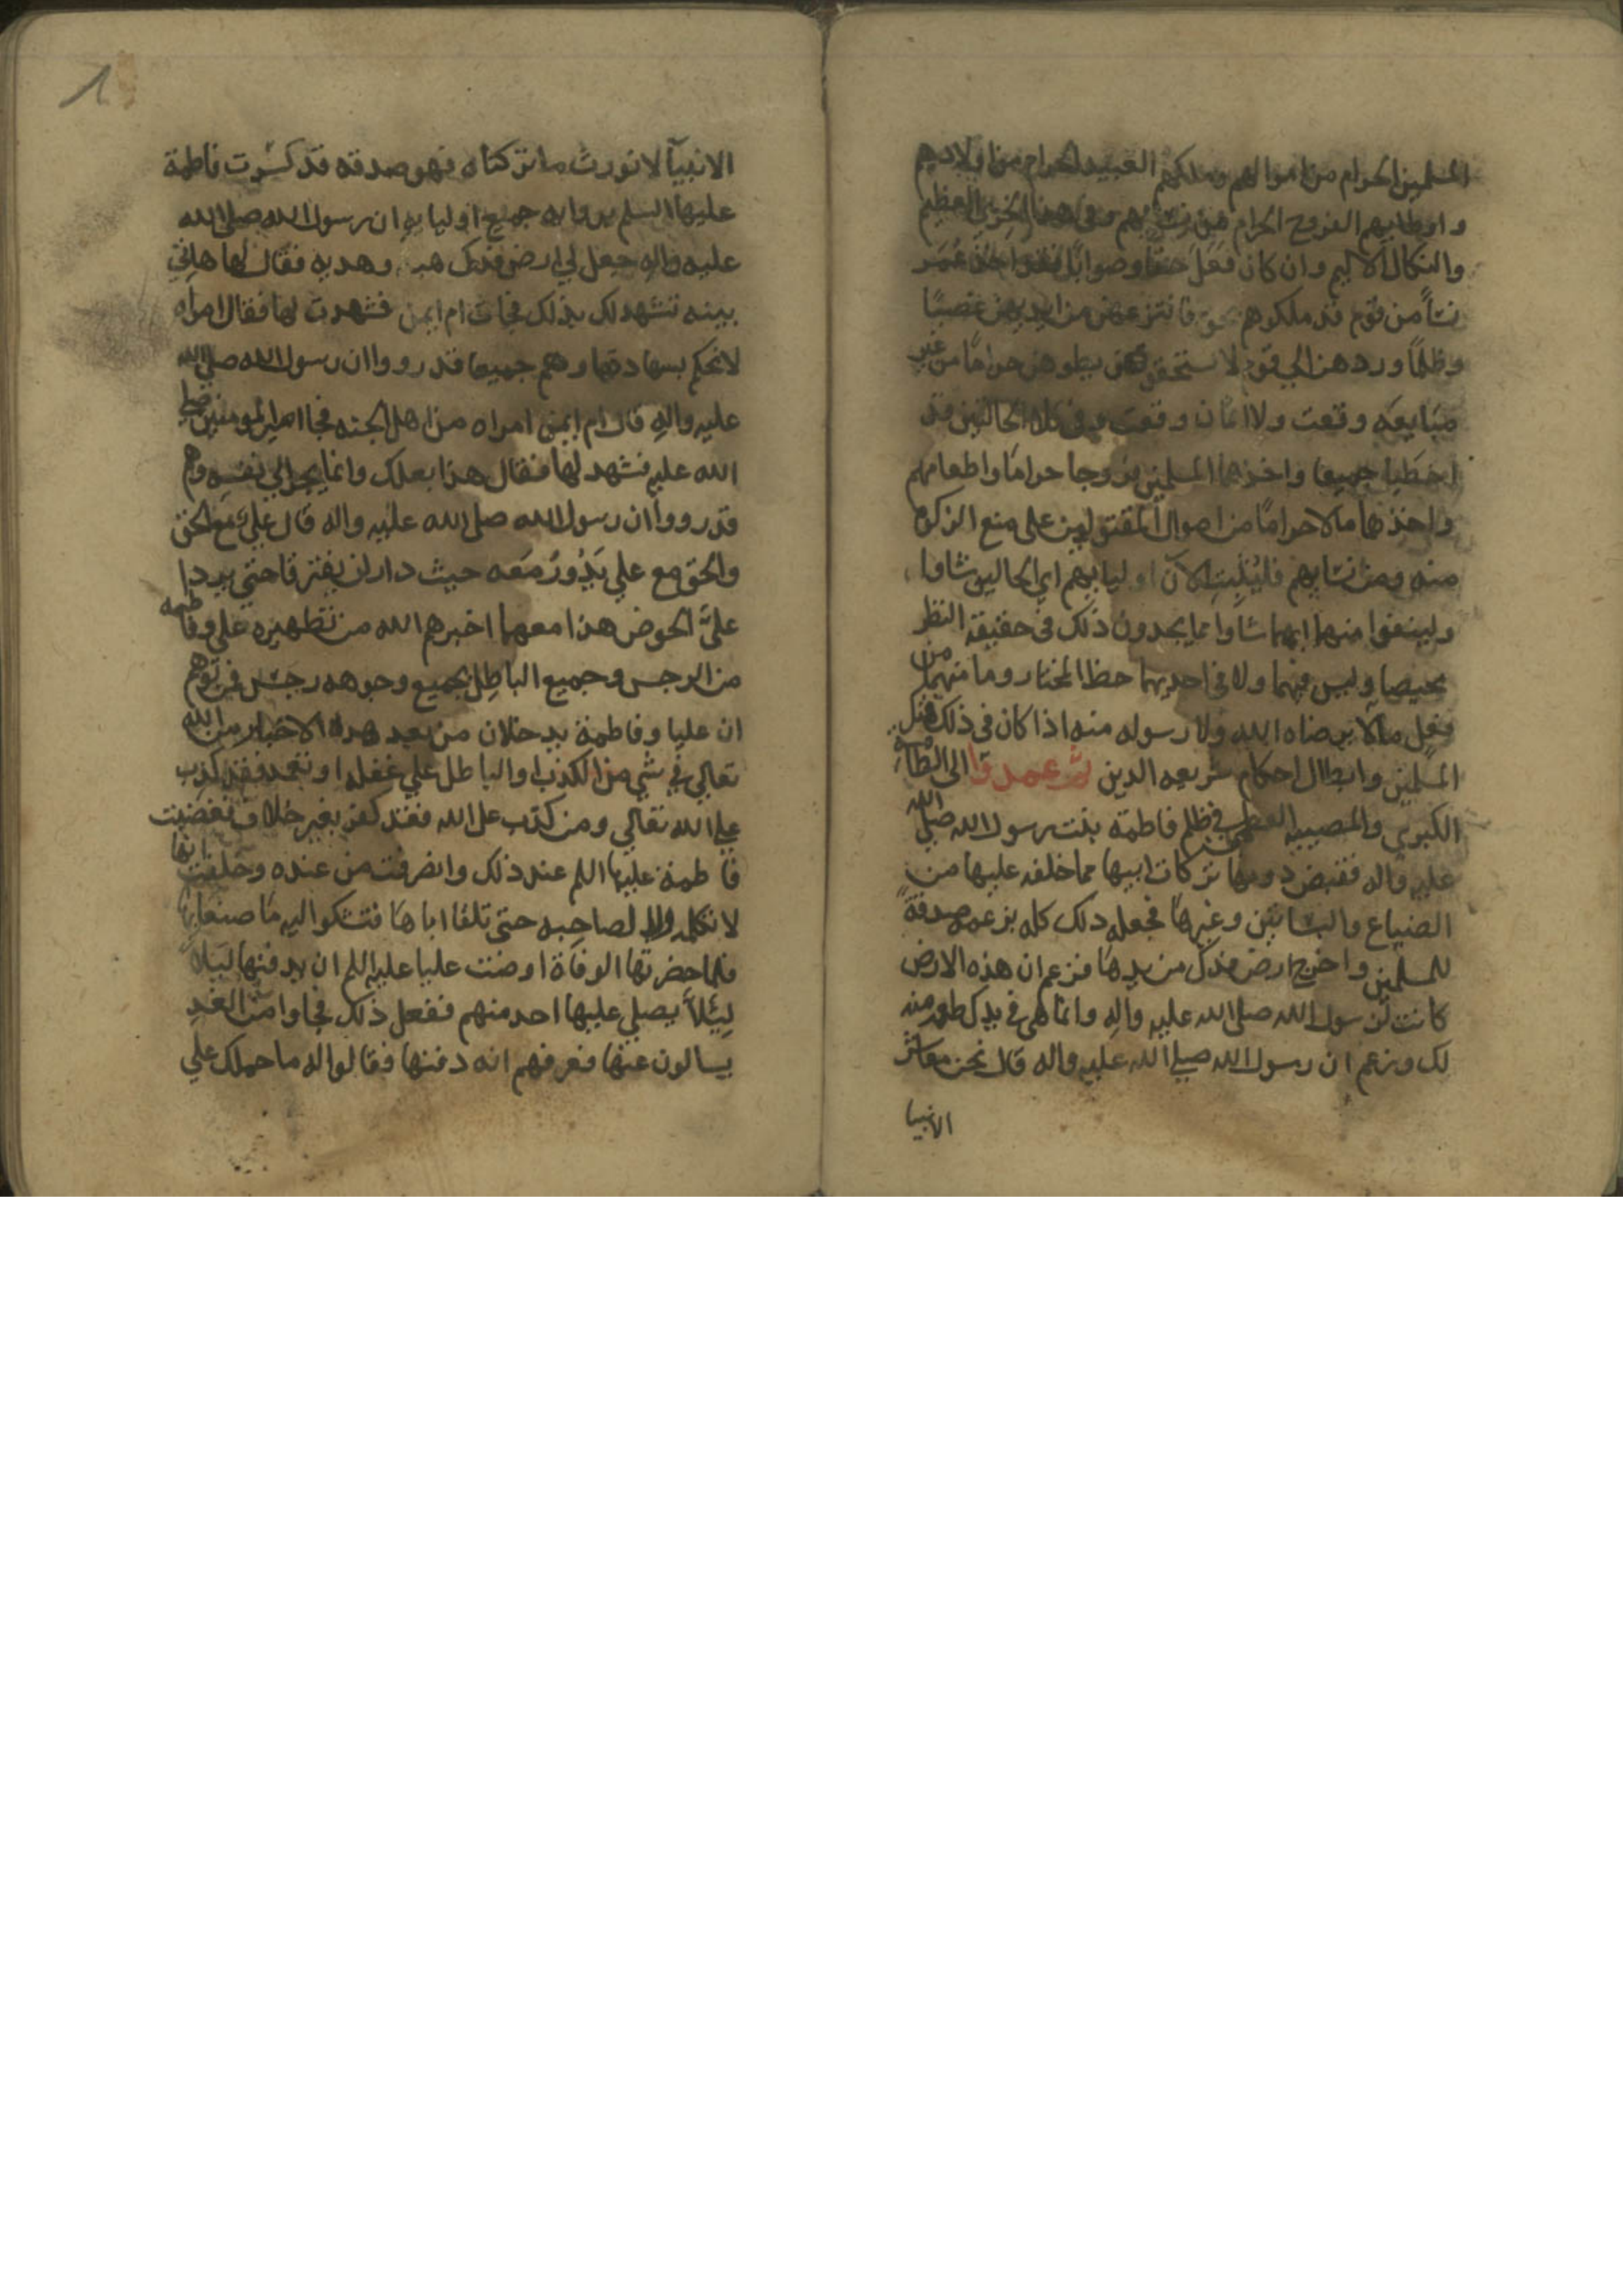 المسلمين الحرام من اموالهم وملكهم العبيد الحرام من اولادهم
واوطايهم الفروج الحرام من نسايهم وفى هذا الخزى العظيم
والنكال الاليم وان كان فعل حقا وصوابا فقد اخذ عمر
نسآ من قوم قد ملكوهم بحق فانتزعهن من ايديهم غصبًا
وظلمًا وردهن الى قوم لا يستحقونهن يطوهن حرامًا من غير
مبايعه وقعت ولا اثمان وقعت وفى كلا الحالتين قد
اخطيا جميعا واخذ هما المسلمين فروجا حراما واطعامهم
واخذهما مالا حرامًا من اموال المقتولين على منع الزكوة
منه ومن نسايهم فليثبت الآن اوليايهم اي الحالين شاوا
ولينفوا منهما ايهما شآوا ما يجدون ذلك فى حقيقة النظر
محيصا وليس فيهما ولا فى احديهما حظ المختار وما منهما من
فعل مالا يرضاه الله ولا رسوله منه اذا كان فى ذلك هتك
المسلمين وابطال احكام شريعه الدين ثم عمد قا الى الطآمة
الكبرى والمصيبه العظمى فى ظلم فاطمة بنت رسول الله صلى الله
عليه واله فقبض دونها تركات ابيها مما خلفه عليها من
الضياع والبساتين وغيرها فجعل ذلك كله بزعمه صدقةً
للمسلمين واخرج ارض فدك من يدها فزعم ان هذه الارض
كانت لرسول الله صلى الله عليه واله وانما هى فى يدك طعمه منه
لك وزعم ان رسول الله صلي الله عليه واله قال نحن معاشر
الانبيا
الانبيآ لا نورث ما تركناه فهو صدقه فذكرت فاطمة
عليها السلم برواية جميع اوليايه ان رسول الله صلى الله
عليه واله جعل لي ارض فدك هبه وهديه فقال لها هاتي
بينه تشهد لك بذلك فجات ام ايمن فشهدت لها فقال امراه
لا نحكم بشهادتها وهم جميعا قد رووا ان رسول الله صلى الله
عليه واله قال ام ايمن امراه من اهل الجنه فجا امير المومنين صلى
الله عليه فشهد لها فقال هذا بعلك وانما يجر الي نفسه وهم
قد رووا ان رسول الله صلى الله عليه واله قال علي مع الحق
والحق مع علي يَدُورُ مَعَه حيث دار لن يفترقا حتي يردا
علىَّ الحوض هذا مع ما اخبرهم الله من تطهيره علي وفاطمه
من الرجس وجميع الباطل بجميع وجوهه رجس فمن توهم
ان عليا وفاطمة يدخلان من بعد هذه الاخبار من الله
تعالي في شي من الكذب والباطل علي غفله او تعمد فقد كذب
علي الله تعالي ومن كذب على الله فقد كفر بغير خلاف فغضبت
فاطمة عليها اللم عند ذلك وانصرفت من عنده وحلفت انها
لا تكلمه ولا لصاحبه حتى تلقا اباها فتشكوا اليه ما صنعا بها
فلما حضرتها الوفاة اوصت عليا عليه اللم ان يدفنها ليلاً
لِيَئلاَّ يصلي عليها احد منهم ففعل ذلك فجاوا من الغدِ
يسالون عنها فعرفهم انه دفنها فقالوا له ما حملك علي